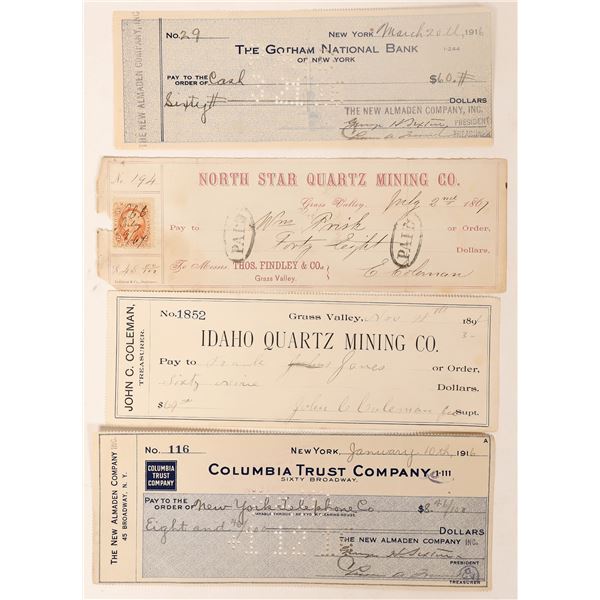 THE NEW ALMADEN COMPANY, INC.
No. 29
NEW YORK March 20th, 1916
THE GOTHAM NATIONAL BANK
OF NEW YORK
1-244
PAY TO THE
ORDER OF Cash $60.
Sixty DOLLARS
THE NEW ALMADEN COMPANY, INC.
George H. Sexton PRESIDENT
TREASURER
No. 194
NORTH STAR QUARTZ MINING CO.
Grass Valley, July 2nd 1867
Pay to Wm Frisk or Order,
Forty Eight Dollars,
PAID
PAID
$48
To Messrs THOS. FINDLEY & CO.
Grass Valley.
E Coleman
JOHN C. COLEMAN,
TREASURER.
No. 1852
Grass Valley, Nov 189
IDAHO QUARTZ MINING CO.
Pay to Frank Jones or Order,
Sixty nine Dollars.
$69 John C Coleman Supt.
THE NEW ALMADEN COMPANY INC.
45 BROADWAY, N. Y.
No. 116
NEW YORK, January 10th, 1916
A
COLUMBIA
TRUST
COMPANY
COLUMBIA TRUST COMPANY 1-111
SIXTY BROADWAY.
PAY TO THE
ORDER OF New York Telephone Co $8.40/100
PAYABLE THROUGH NEW YORK CLEARING HOUSE
Eight and 40/100 DOLLARS
THE NEW ALMADEN COMPANY INC.
George H. Sexton
PRESIDENT
TREASURER